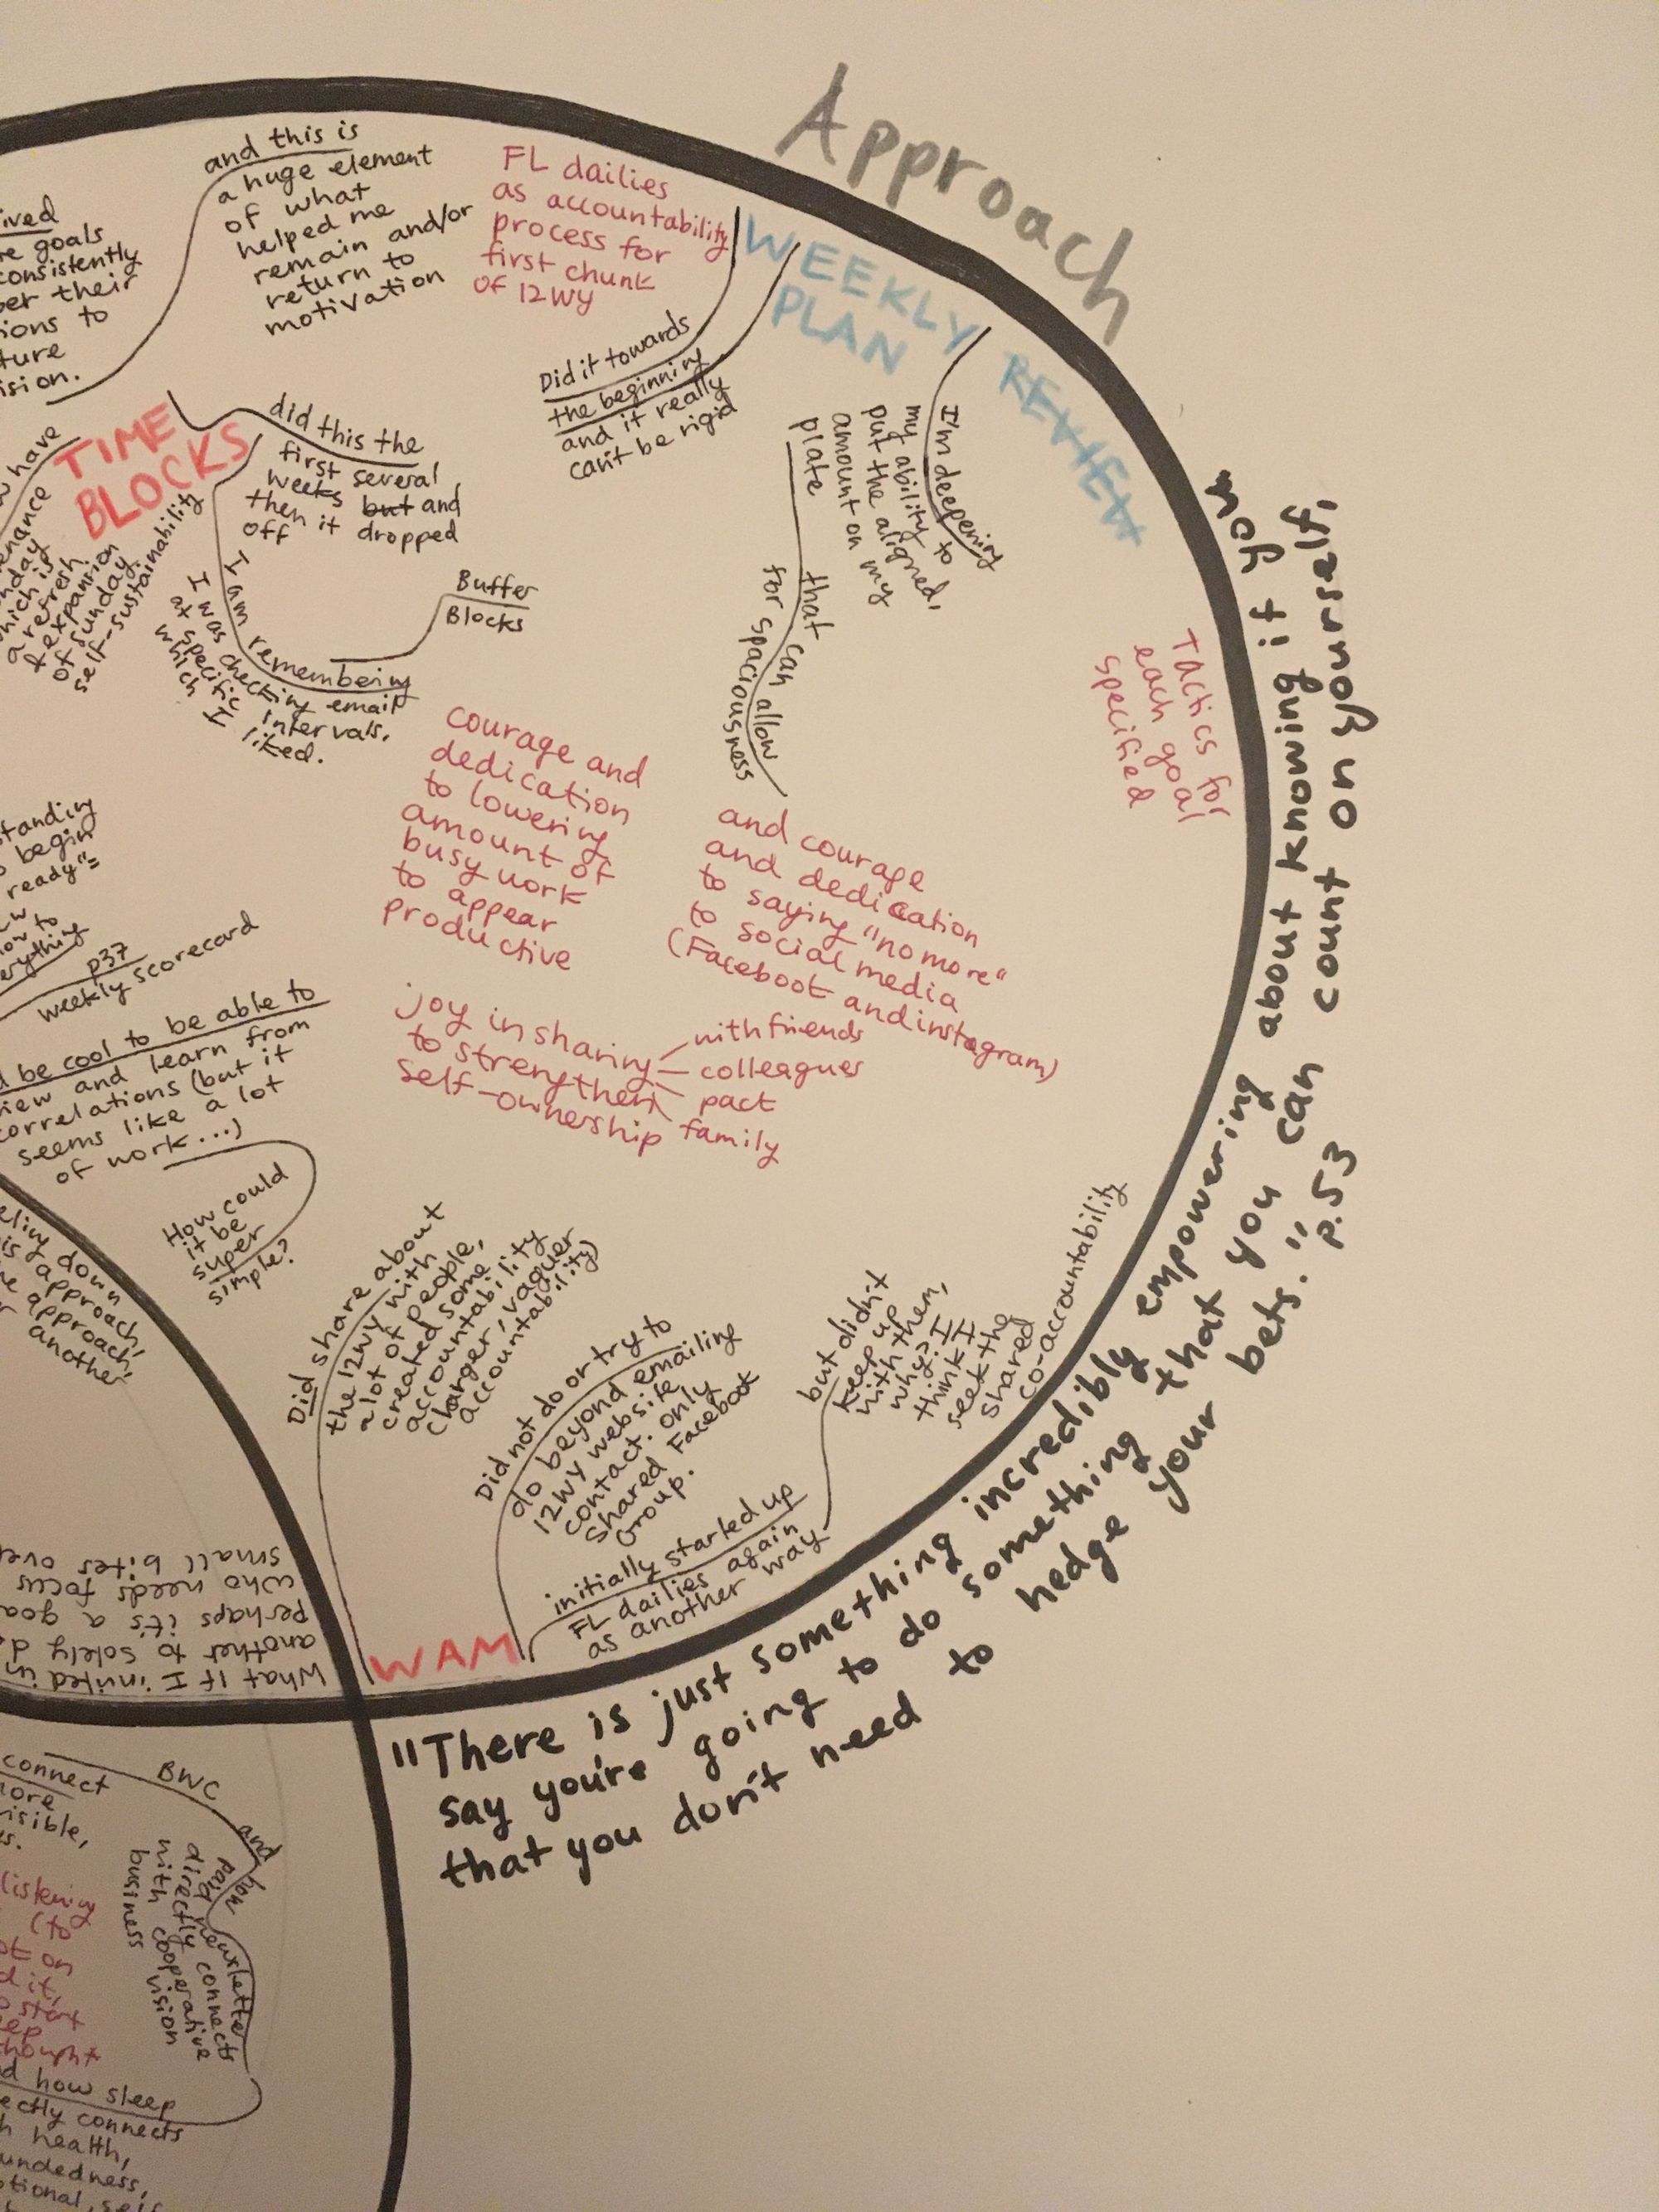 Approach
and this is
a huge element
of what
helped me
remain and/or
return to
motivation
FL dailies
as accountability
process for
first chunk
of 12WY
WEEKLY
PLAN
REVIEW
Did it towards
the beginning
and it really
can't be rigid
I'm deepening
my ability to
put the aligned,
amount on my
plate
that can allow
for spaciousness
Tactics for
each goal
specified
goals
consistently
their
to
TIME
BLOCKS
have
which is
a refresh
& expansion
of sunday
self-sustainability
did this the
first several
weeks but and
then it dropped
off
Buffer
Blocks
I am remembeing
I was checking email
at specific intervals.
which I liked.
courage and
dedication
to lowering
amount of
busy work
to appear
productive
and courage
and dedication
to saying "no more"
to social media
(Facebook and instagram)
joy in sharing
to strengthen
self-ownership
with friends
colleagues
pact
family
begin
ready"=
p37
weekly scorecard
be cool to be able to
and learn from
correlations (but it
seems like a lot
of work...)
How could
it be
super
simple?
down
approach,
approach,
another
Did share about
the 12WY with
a lot of people,
created some
accountability
(larger, vaguer
accountability)
Did not do or try to
do beyond emailing
12WY website
contact. only
shared Facebook
Group.
initially started up
FL dailies again
as another way
but didn't
keep up
with them,
why? I
think I
seek the
shared
co-accountability
WAM
What if I invited
another to solely
perhaps it's a
who needs focus
small bites
"There is just something incredibly empowering about knowing if you
say you're going to do something that you can count on yourself,
that you don't need to hedge your bets." p.53
connect
BWC
and how
paid newsletter
directly connects
with cooperative
business vision
listening
(to
on
start
thought
how sleep
connects
health,